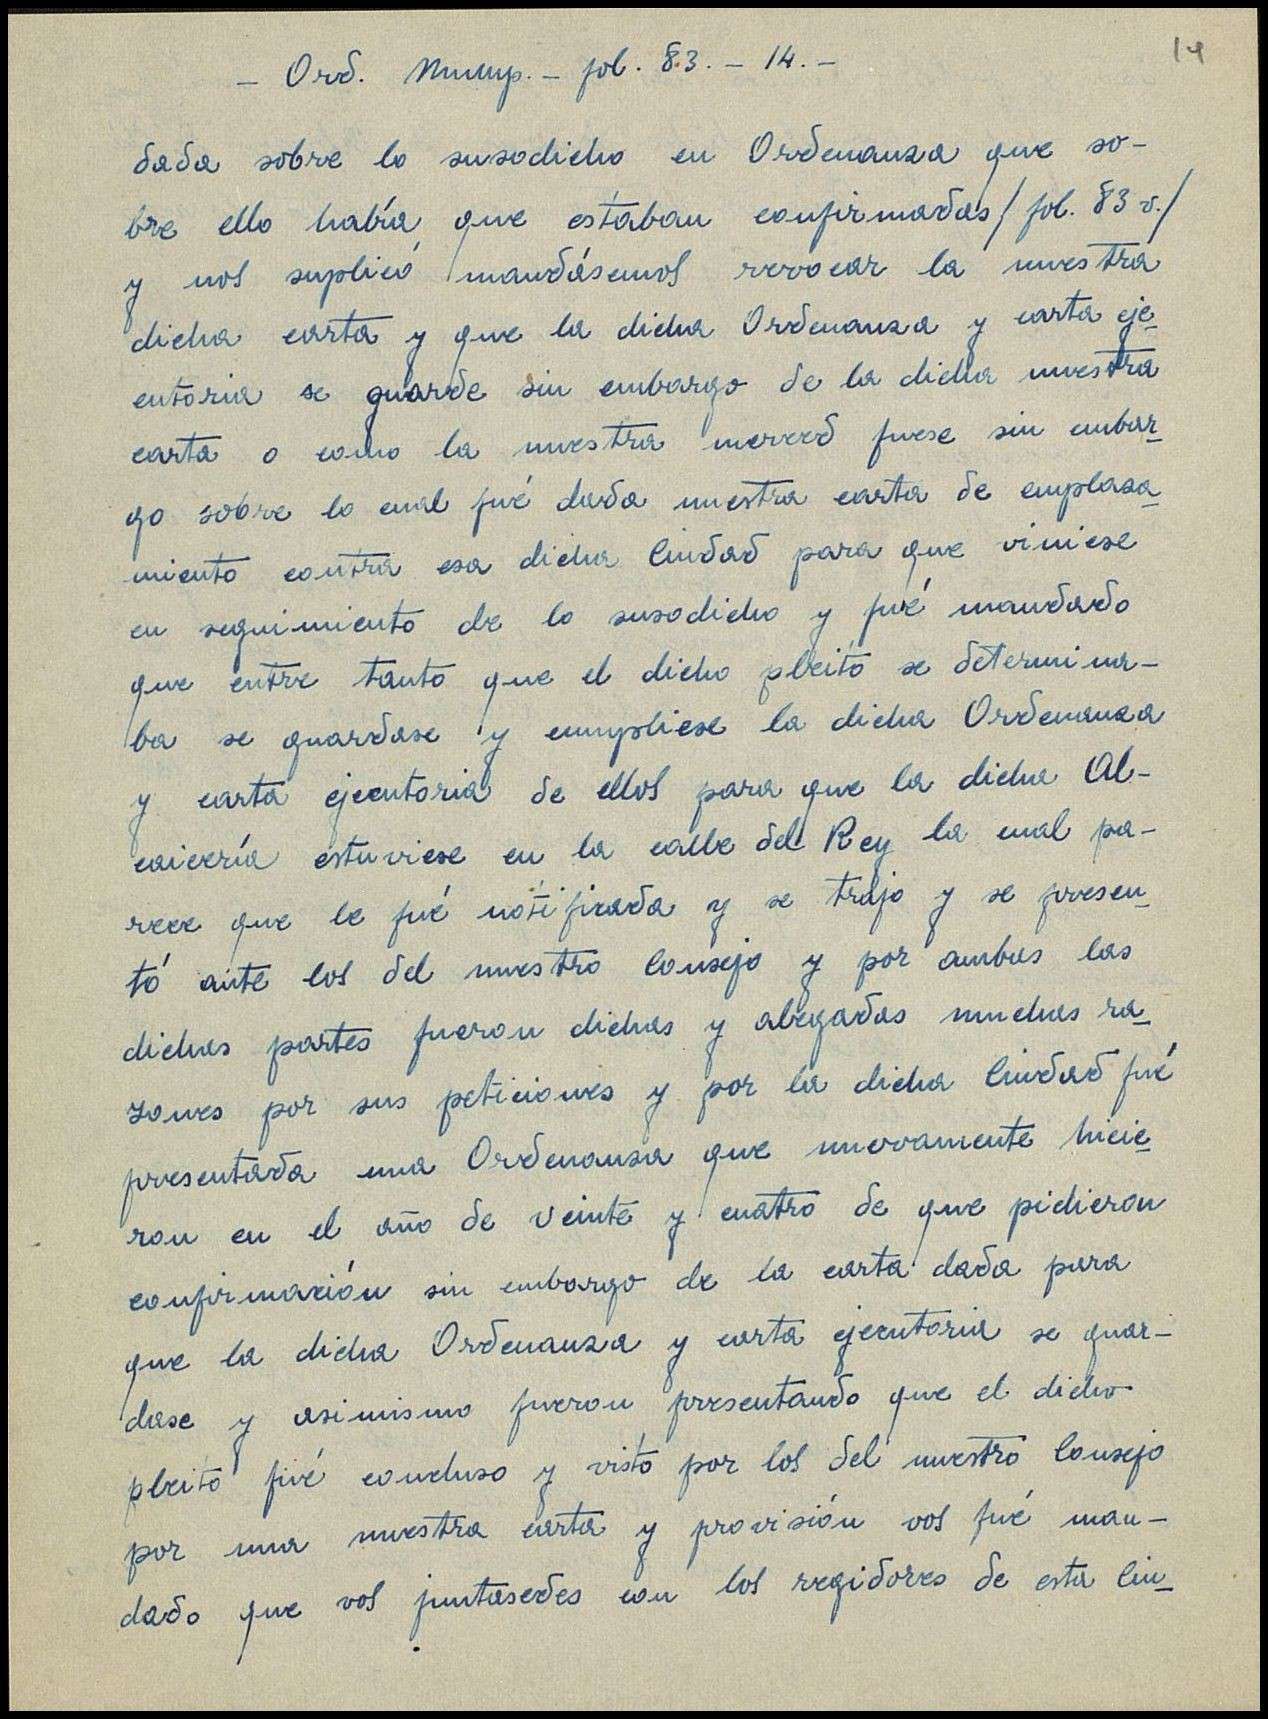 14
- Ord. Munip. - fol. 83. - 14. -
dada sobre lo susodicho en Ordenanza que so-
bre ello había que estaban confirmadas/ fol. 83 v./
y nos suplicó mandásemos revocar la nuestra
dicha carta y que la dicha Ordenanza y carta eje-
cutoria se guarde sin embargo de la dicha nuestra
carta o como la nuestra merced fuese sin embar-
go sobre lo cual fué dada nuestra carta de emplaza-
miento contra esa dicha Ciudad para que viniese
en seguimiento de lo susodicho y fué mandado
que entre tanto que el dicho pleito se determina-
ba se guardase y cumpliese la dicha Ordenanza
y carta ejecutoria de ellos para que la dicha Al-
caicería estuviese en la calle del Rey la cual pa-
rece que le fué notificada y se trajo y se presen-
tó ante los del nuestro Consejo y por ambas las
dichas partes fueron dichas y alegadas muchas ra-
zones por sus peticiones y por la dicha Ciudad fué
presentada una Ordenanza que nuevamente hicie-
ron en el año de veinte y cuatro de que pidieron
confirmación sin embargo de la carta dada para
que la dicha Ordenanza y carta ejecutoria se guar-
dase y asimismo fueron presentando que el dicho
pleito fué concluso y visto por los del nuestro Consejo
por una nuestra carta y provisión vos fué man-
dado que vos juntasedes con los regidores de esta Ciu-